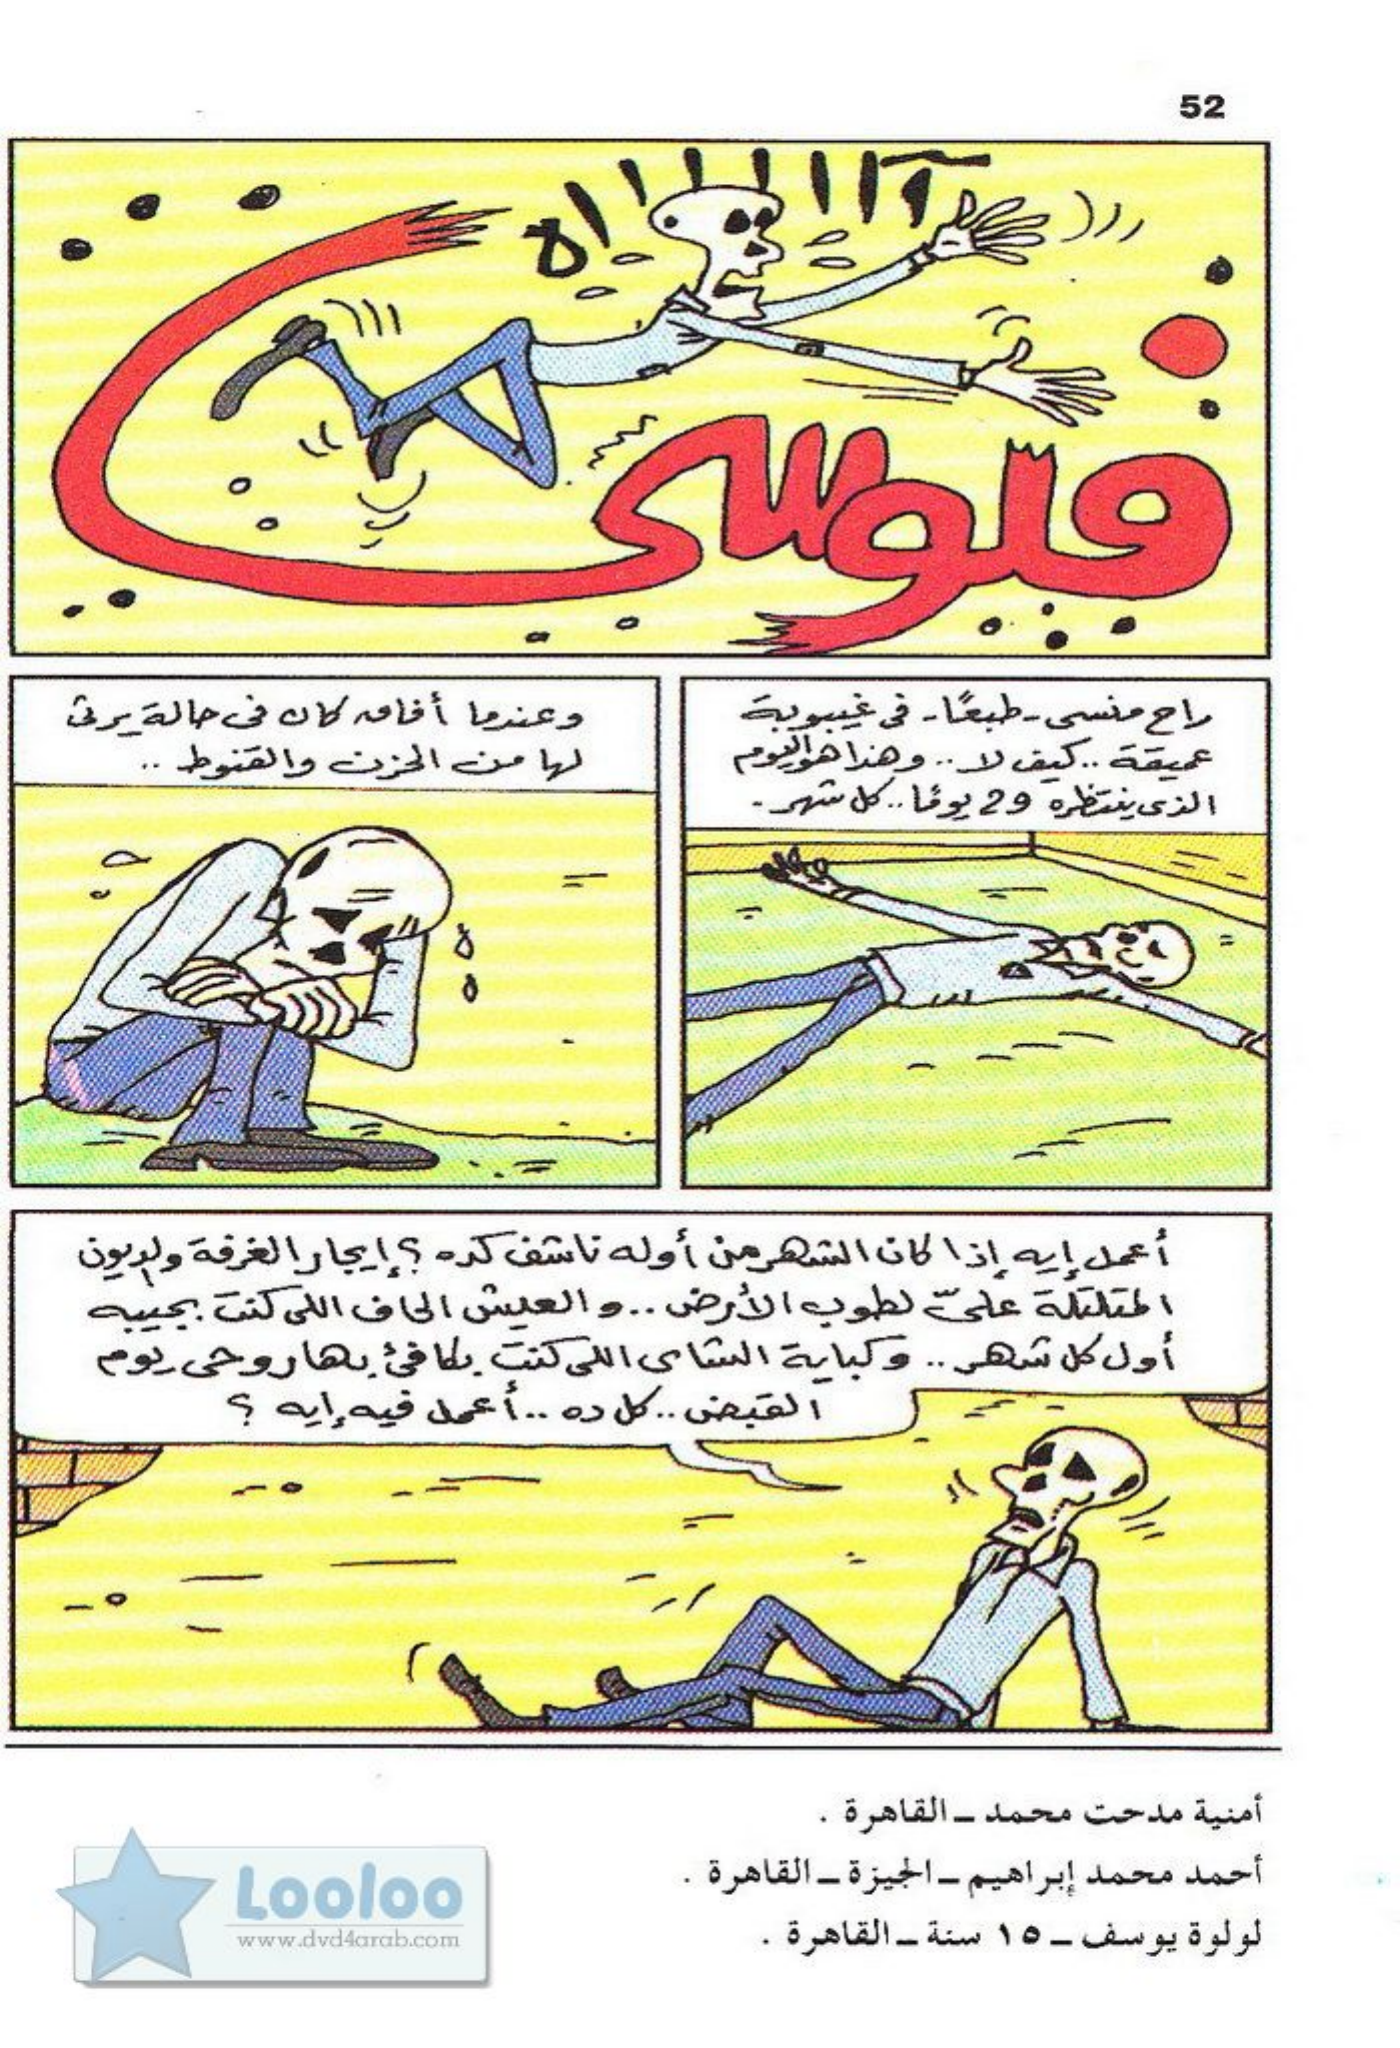 52
آ ا ا ا ا ا ا ا ه
فلوسي
راح منسى - طبعًا - فى غيبوبة
عميقة .. كيف لا .. وهذا هو اليوم
الذى ينتظره 29 يومًا .. كل شهر .
وعندما أفاق كان فى حالة يرثى
لها من الحزن والقنوط ..
أعمل إيه إذا كان الشهر من أوله ناشف كده ؟ إيجار الغرفة والديون
المتلتلة علىّ لطوب الأرض .. والعيش الحاف اللى كنت بجيبه
أول كل شهر .. وكباية الشاى اللى كنت بكافئ بها روحى يوم
القبض .. كل ده .. أعمل فيه إيه ؟
أمنية مدحت محمد ــ القاهرة .
أحمد محمد إبراهيم ــ الجيزة ــ القاهرة .
لولوة يوسف ــ ١٥ سنة ــ القاهرة .
Looloo
www.dvd4arab.com